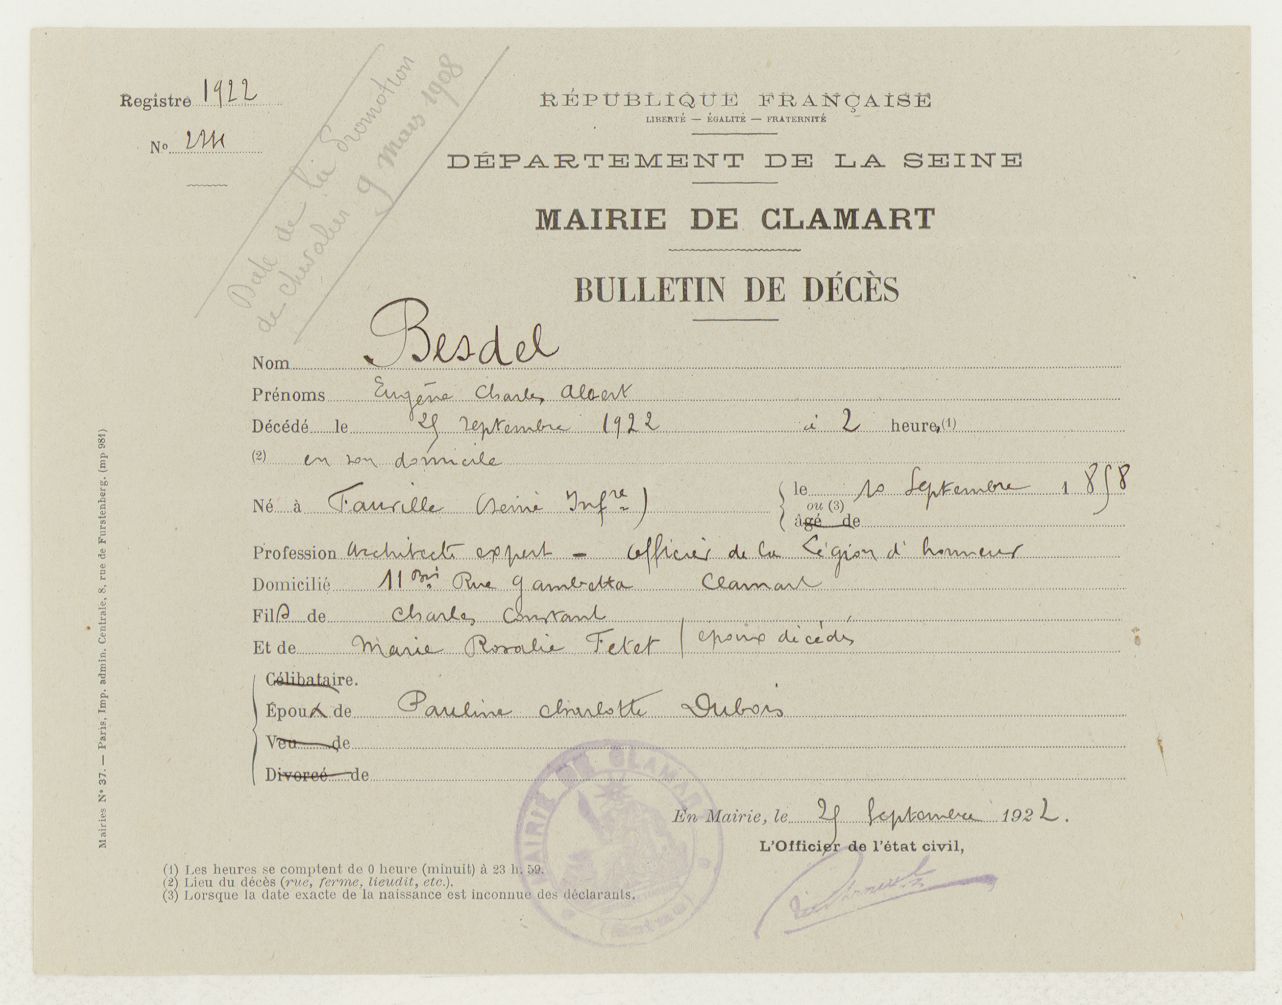 Registre 1922
Nº
Date de la promotion
de chevalier 9 Mars 1908
RÉPUBLIQUE FRANÇAISE
LIBERTÉ — ÉGALITÉ — FRATERNITÉ
DÉPARTEMENT DE LA SEINE
MAIRIE DE CLAMART
BULLETIN DE DÉCÈS
Nom Besdel
Prénoms Eugène Charles Albert
Décédé le 25 septembre 1922 à 2 heures (1)
(2) en son domicile
Né à Fauville (Seine Infre) le 10 Septembre 1858
ou (3)
âgé de
Profession Architecte expert - officier de la Légion d'honneur
Domicilié 11 bis Rue Gambetta Clamart
Fils de Charles Constant
Et de Marie Rosalie Fetet époux décédés
Célibataire.
Époux de Pauline Charlotte Dubois
Veu de
Divorcé de
MAIRIE DE CLAMART
(Seine)
En Mairie, le 25 Septembre 1922.
L'Officier de l'état civil,
(1) Les heures se comptent de 0 heure (minuit) à 23 h. 59.
(2) Lieu du décès (rue, ferme, lieudit, etc.).
(3) Lorsque la date exacte de la naissance est inconnue des déclarants.
Mairies Nº 37. — Paris, Imp. admin. Centrale, 8, rue de Furstenberg. (mp 981)